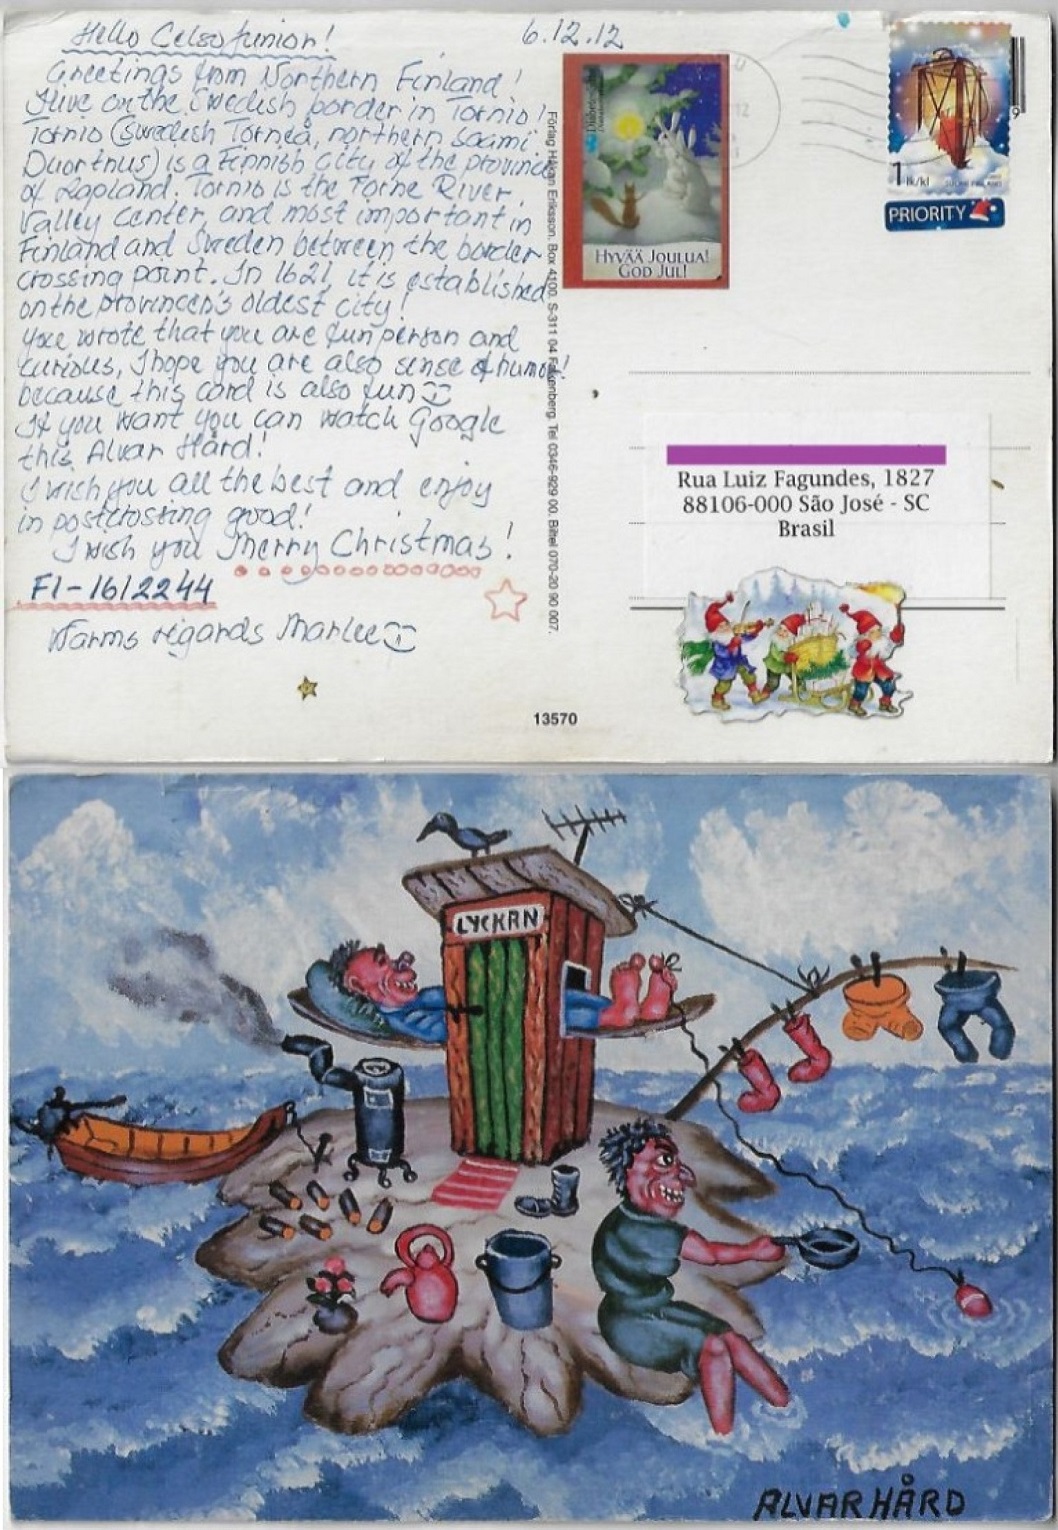 Hello Celso Junior!
6.12.12
Greetings from Northern Finland!
I live on the Swedish border in Tornio!
Tornio (Swedish Torneå, northern Saami
Duortnus) is a Finnish city of the province
of Lapland. Tornio is the Torne River
Valley center, and most important in
Finland and Sweden between the border
crossing point. In 1621, it is established
on the provincen's oldest city!
You wrote that you are fun person and
curious, I hope you are also sense of humor!
because this card is also fun
If you want you can watch Google
this Alvar Hård!
I wish you all the best and enjoy
in postcrossing good!
I wish you Merry Christmas!
FI-1612244
Warms regards Marlee
Förlag Håkan Eriksson, Box 4100, S-311 04 Falkenberg. Tel 0346-929 00. Biltel 070-20 90 007.
13570
HYVÄÄ JOULUA!
GOD JUL!
1 lk/kl
SUOMI FINLAND
PRIORITY
9
Rua Luiz Fagundes, 1827
88106-000 São José - SC
Brasil
LYCKAN
ALVAR HÅRD